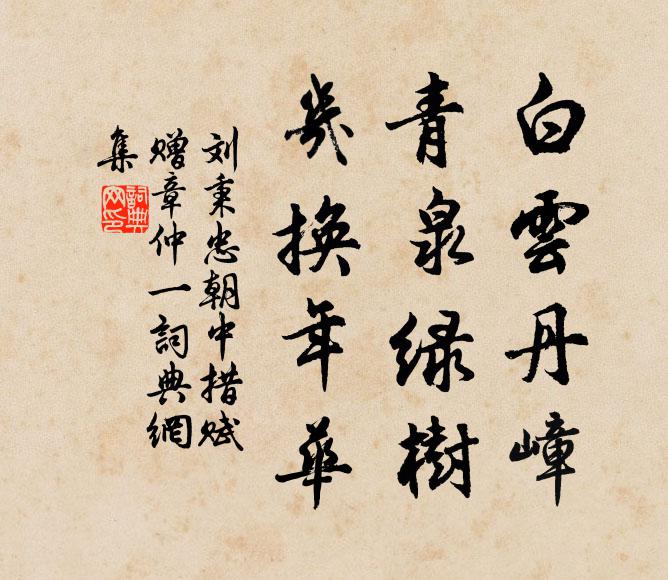 白雲丹嶂
青泉绿樹
幾換年華
刘秉忠朝中措赋
赠章仲一詞典網
集
詞典網印